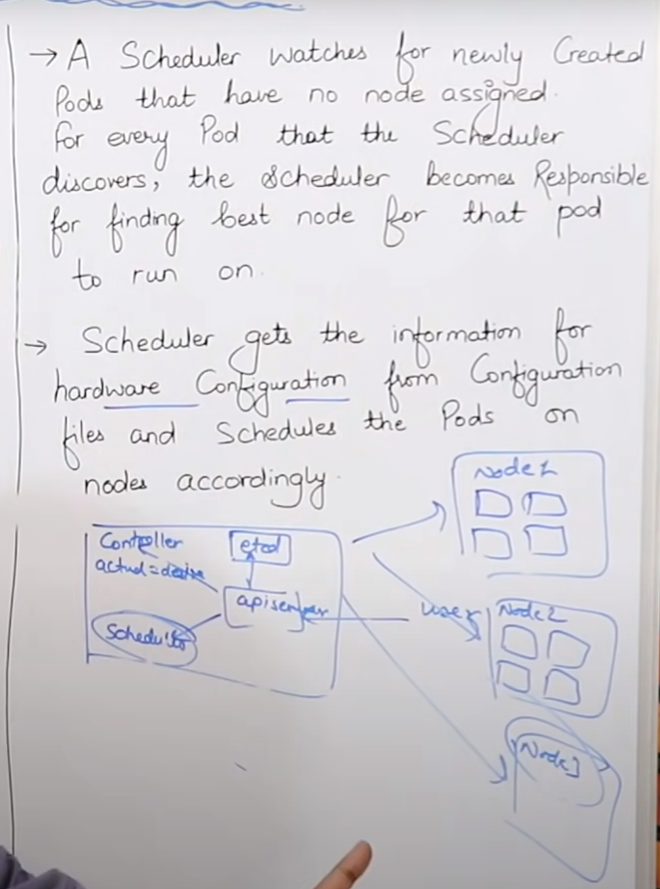 → A Scheduler watches for newly Created
Pods that have no node assigned.
For every Pod that the Scheduler
discovers, the Scheduler becomes Responsible
for finding best node for that pod
to run on.
→ Scheduler gets the information for
hardware Configuration from Configuration
files and Schedules the Pods on
nodes accordingly.
Node1
Controller
etcd
actual =
apiserver
user
Node2
Scheduler
Node3